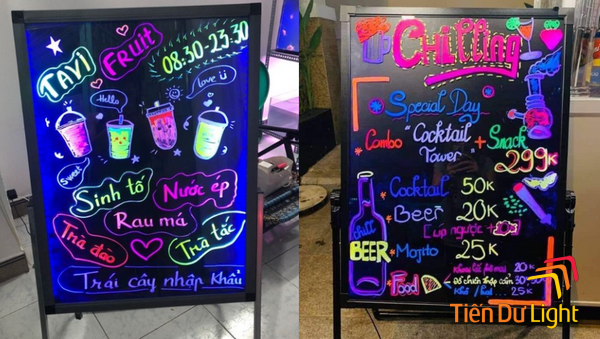 TAVI
FRUIT
08:30-23:30
Hello
love ü
Sweet
Sinh tố
Nước ép
Rau má
Trà đào
Trà tắc
Trái cây nhập khẩu
Chilling
Special Day
Combo "Cocktail Tower" + Snack
299K
Cocktail 50K
Beer 20K
Cup ngược + 20K
chill
BEER
Mojito 25K
Food
20K
Đồ chiên thập cẩm 30, 50
25K
Tiến Dư Light